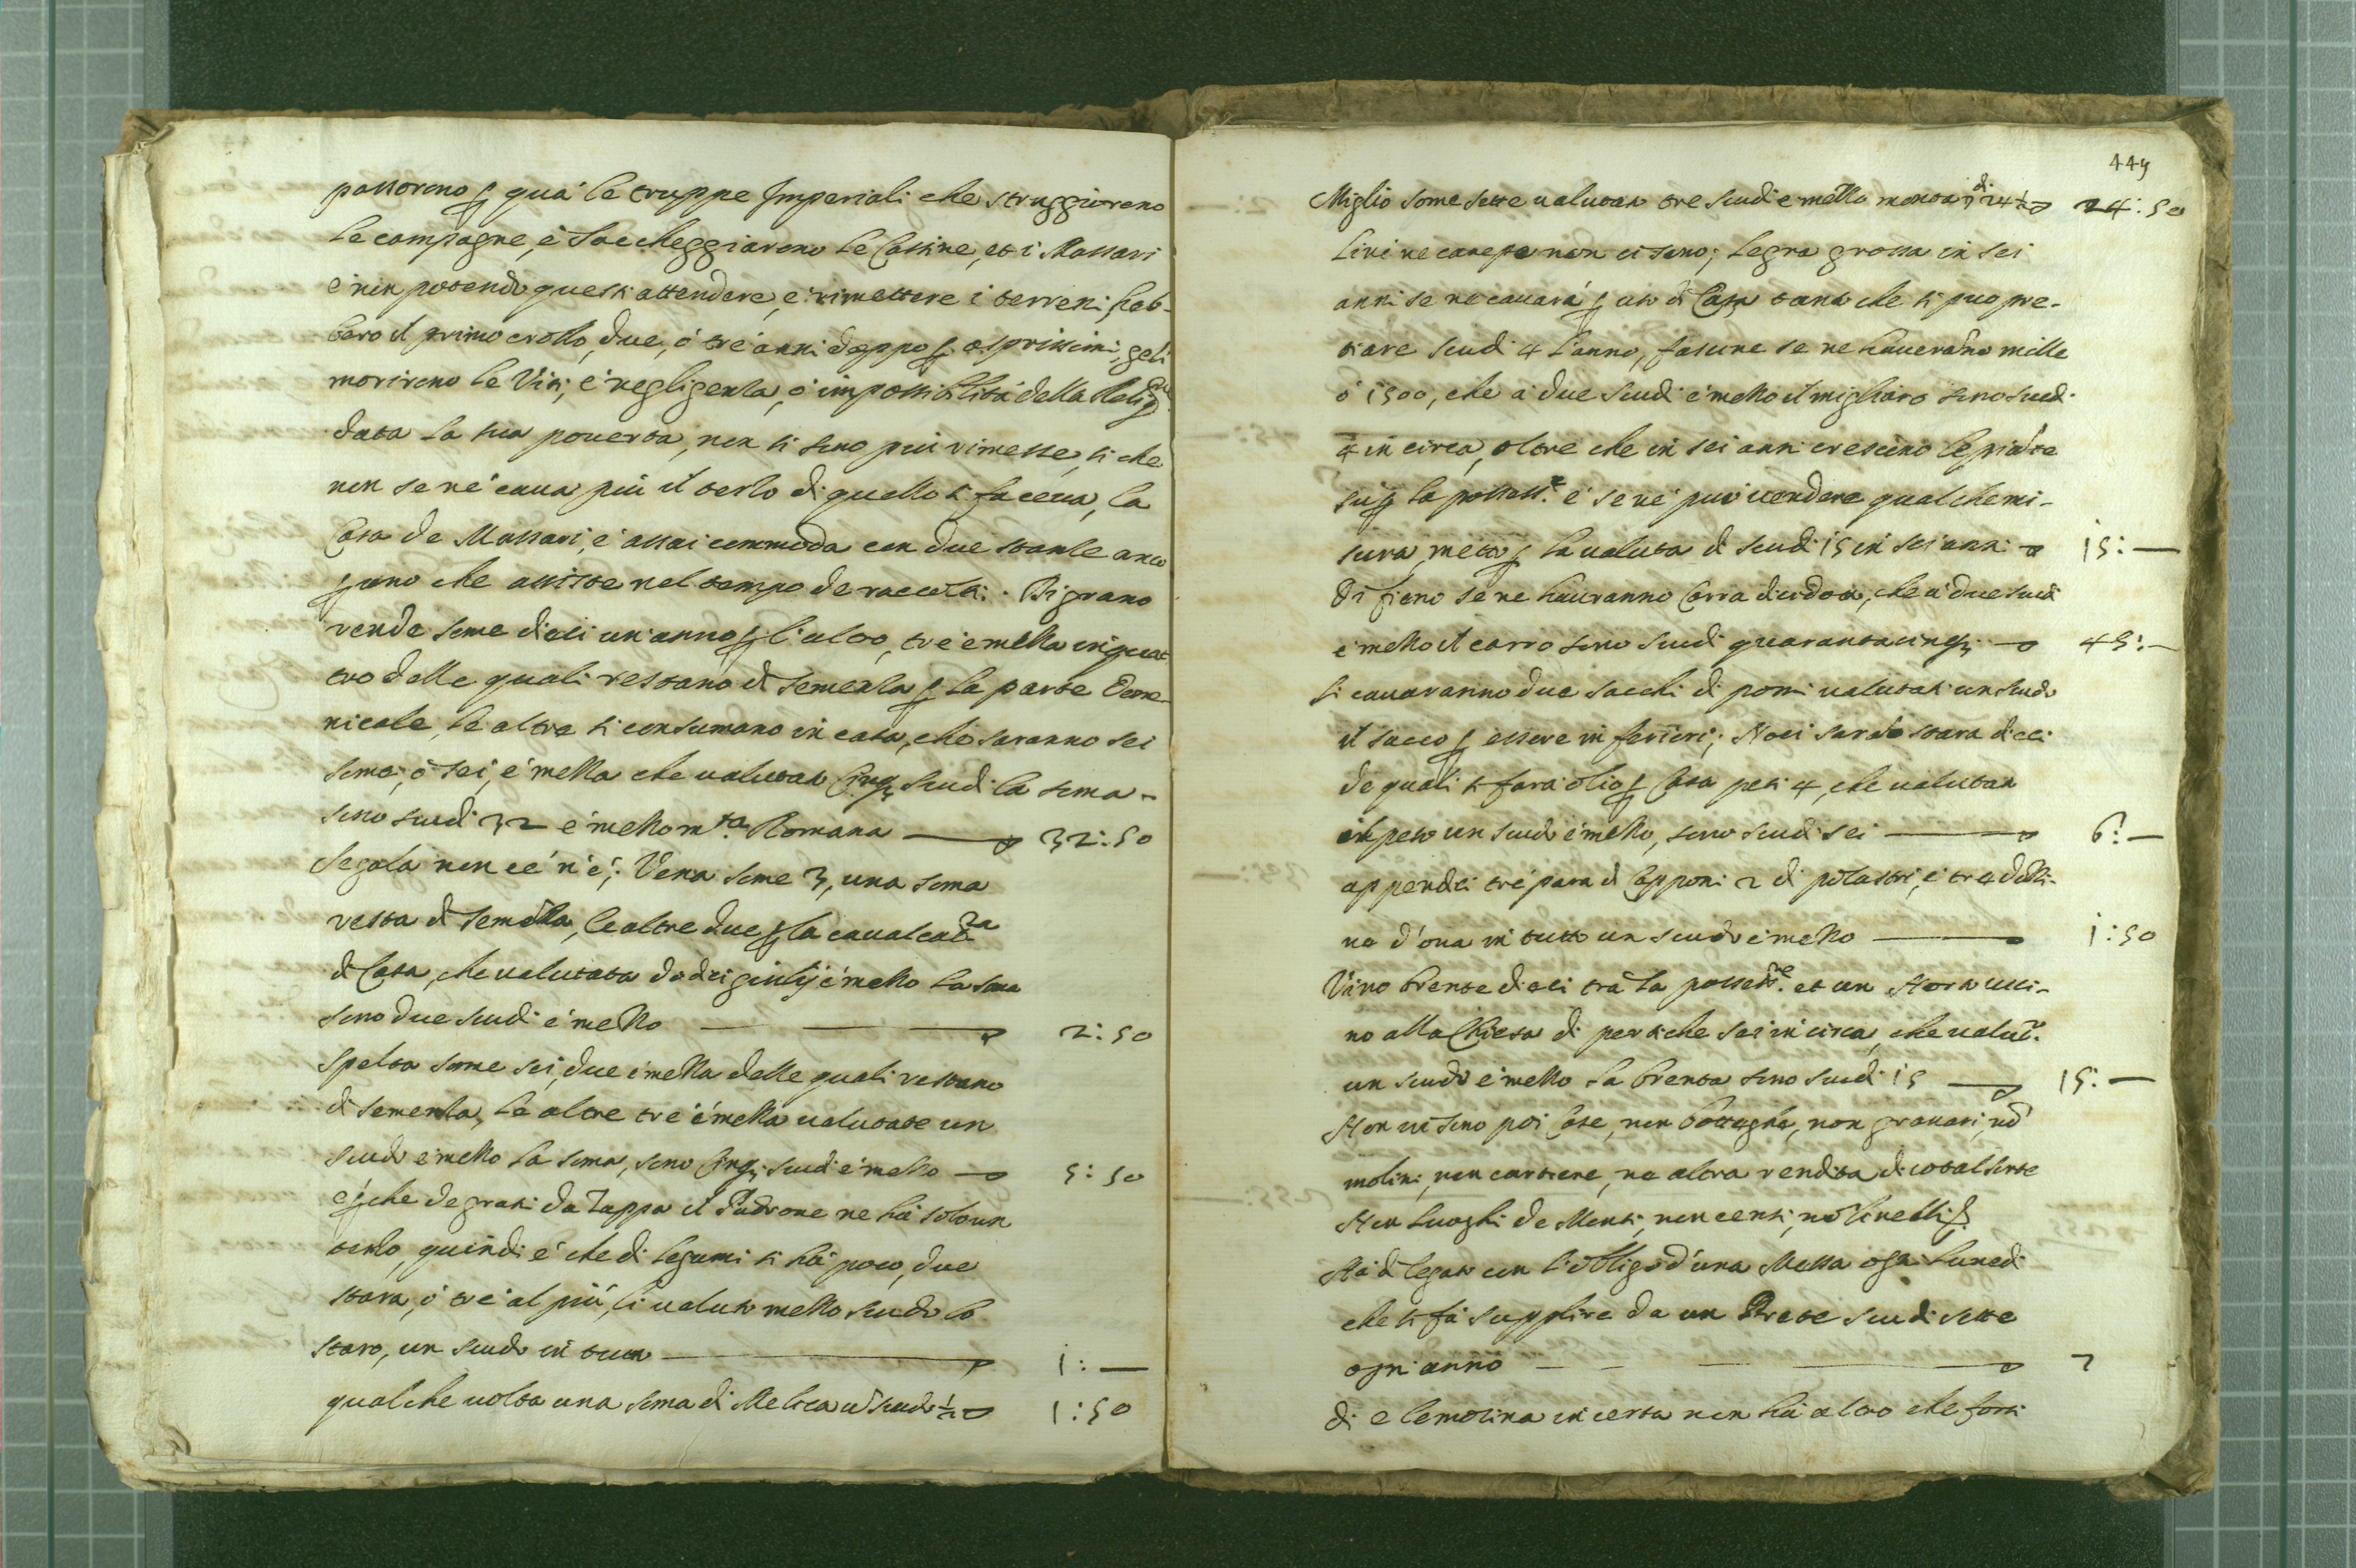 passoreno p qua le truppe Imperiali che struggioreno
le campagne, è saccheggiareno le Cassine, et i Massari
e non potendo questi attendere, e rimettere i terreni heb-
bero il primo crollo, due, ò tre anni doppo p asprissimi geli
morireno le Viti, e negligenza, ò impossibilità della Relig.ne
data la sua pouerta, non si sono più rimesse, si che
non se ne caua più il terzo di quello si faceua, la
Casa de Massari, e assai commoda con due stanze anco
p uno che assiste nel tempo de raccolti. Di grano
rende some dieci un anno p l'altro, tre e mezza in quat
tro delle quali restano di semenza p la parte Dome-
nicale, le altre si consumano in casa, che saranno sei
some, ò sei, e mezza che valutate Cinq; scudi la soma -
sono scudi 32 e mezzo m.ta Romana 32:50
Segala non ce n'è; Vena some 3, una soma
resta di semẽza, le altre due p la caualcat.ra
di Casa, che valutata dodeci giulij e mezzo la soma
sono due scudi e mezzo 2:50
Spelta some sei, due e mezza delle quali restano
di semenza, le altre tre e mezza valutate un
scudo e mezzo la soma, sono Cinq; scudi e mezzo 5:50
e p che de grani da Zappa il Padrone ne hà solo un
terzo, quindi e che di legumi si hà poco, due
stara, ò tre al più, li valuto mezzo scudo lo
staro, un scudo in tutto 1:—
qualche volta una soma di Melica ũ scudo ½ 1:50
449
Miglio some sette valutate tre scudi e mezzo monta di 24 ½ 24:50
Lini ne canepe non ci sono; Legna grossa in sei
anni se ne cauarà p uso di Casa tanta che si puo pre-
tiare scudi 4 l'anno, fascine se ne haueranno mille
ò 1500, che à due scudi e mezzo il migliaro sono scudi
4 in circa, oltre che in sei anni crescono le piante
sù p la possess.e e se ne può vendere qualche mi-
sura, metto p la valuta di scudi 15 in sei anni 15:—
Di fieno se ne hauranno Carra dicidotto, che à due scudi
e mezzo il carro sono scudi quarantacinq; 45:—
Si cauaranno due sacchi di pomi valutati un scudo
il sacco p essere inferiori; Noci sarãno stara dieci
de quali si fara olio p Casa pesi 4, che valutati
il peso un scudo e mezzo, sono scudi sei 6:—
appendici tre para di Capponi 2 di polastri, e tre dozzi-
na d'oua in tutto un scudo e mezzo 1:50
Vino brente dieci trà la possess.ne et un Horto vici-
no alla Chiesa di pertiche sei in circa, che valut.
un scudo e mezzo la brenta sono scudi 15 15:—
Non vi sono poi Case, non botteghe, non granari, nõ
molini, non cartiere, ne altra rendita di cotal sorte
Non luoghi de Monti, non censi, nõ linelli &
Hà di legato con l'obligo d'una Messa ogni Lunedi
che si fà supplire da un Prete scudi sette
ogni anno 7
di elemosina incerta non hà altro che forsi